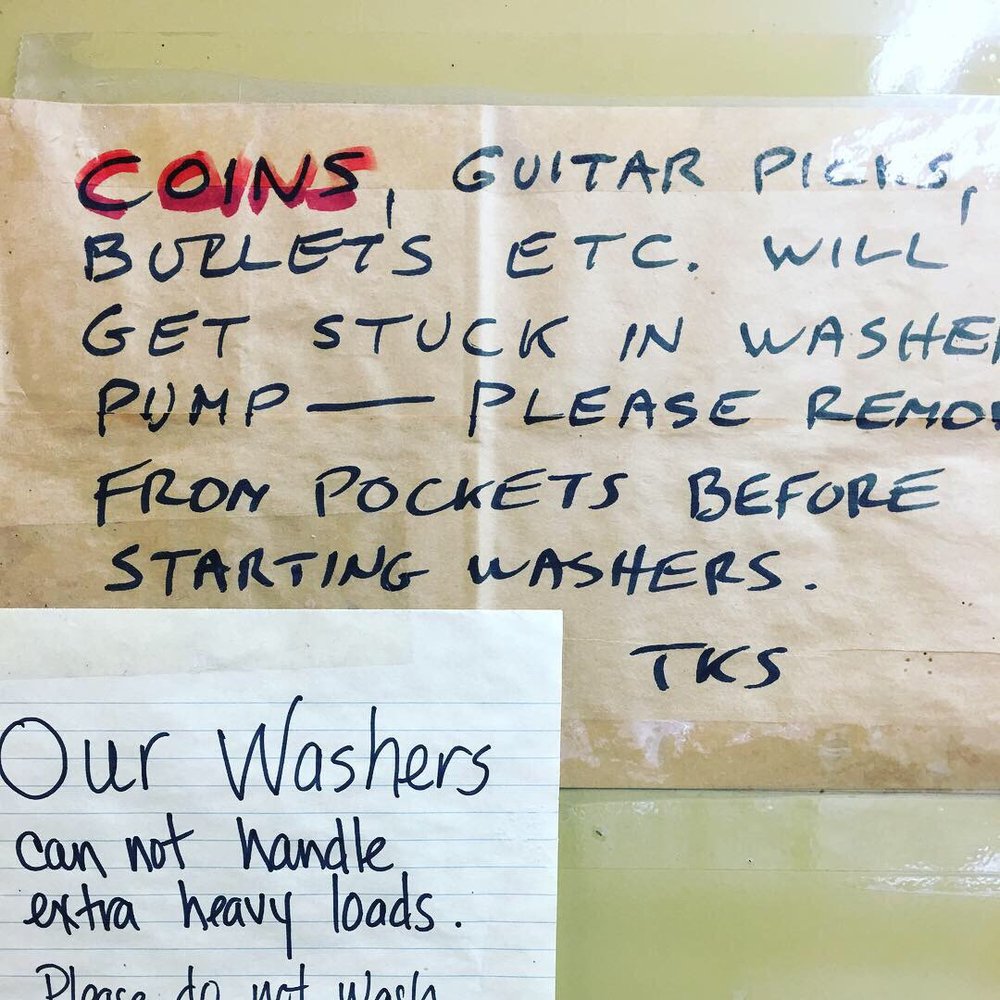 COINS, GUITAR PICKS,
BULLETS ETC. WILL
GET STUCK IN WASHER
PUMP — PLEASE REMOV
FROM POCKETS BEFORE
STARTING WASHERS.
TKS
Our Washers
can not handle
extra heavy loads.
Please do not wash